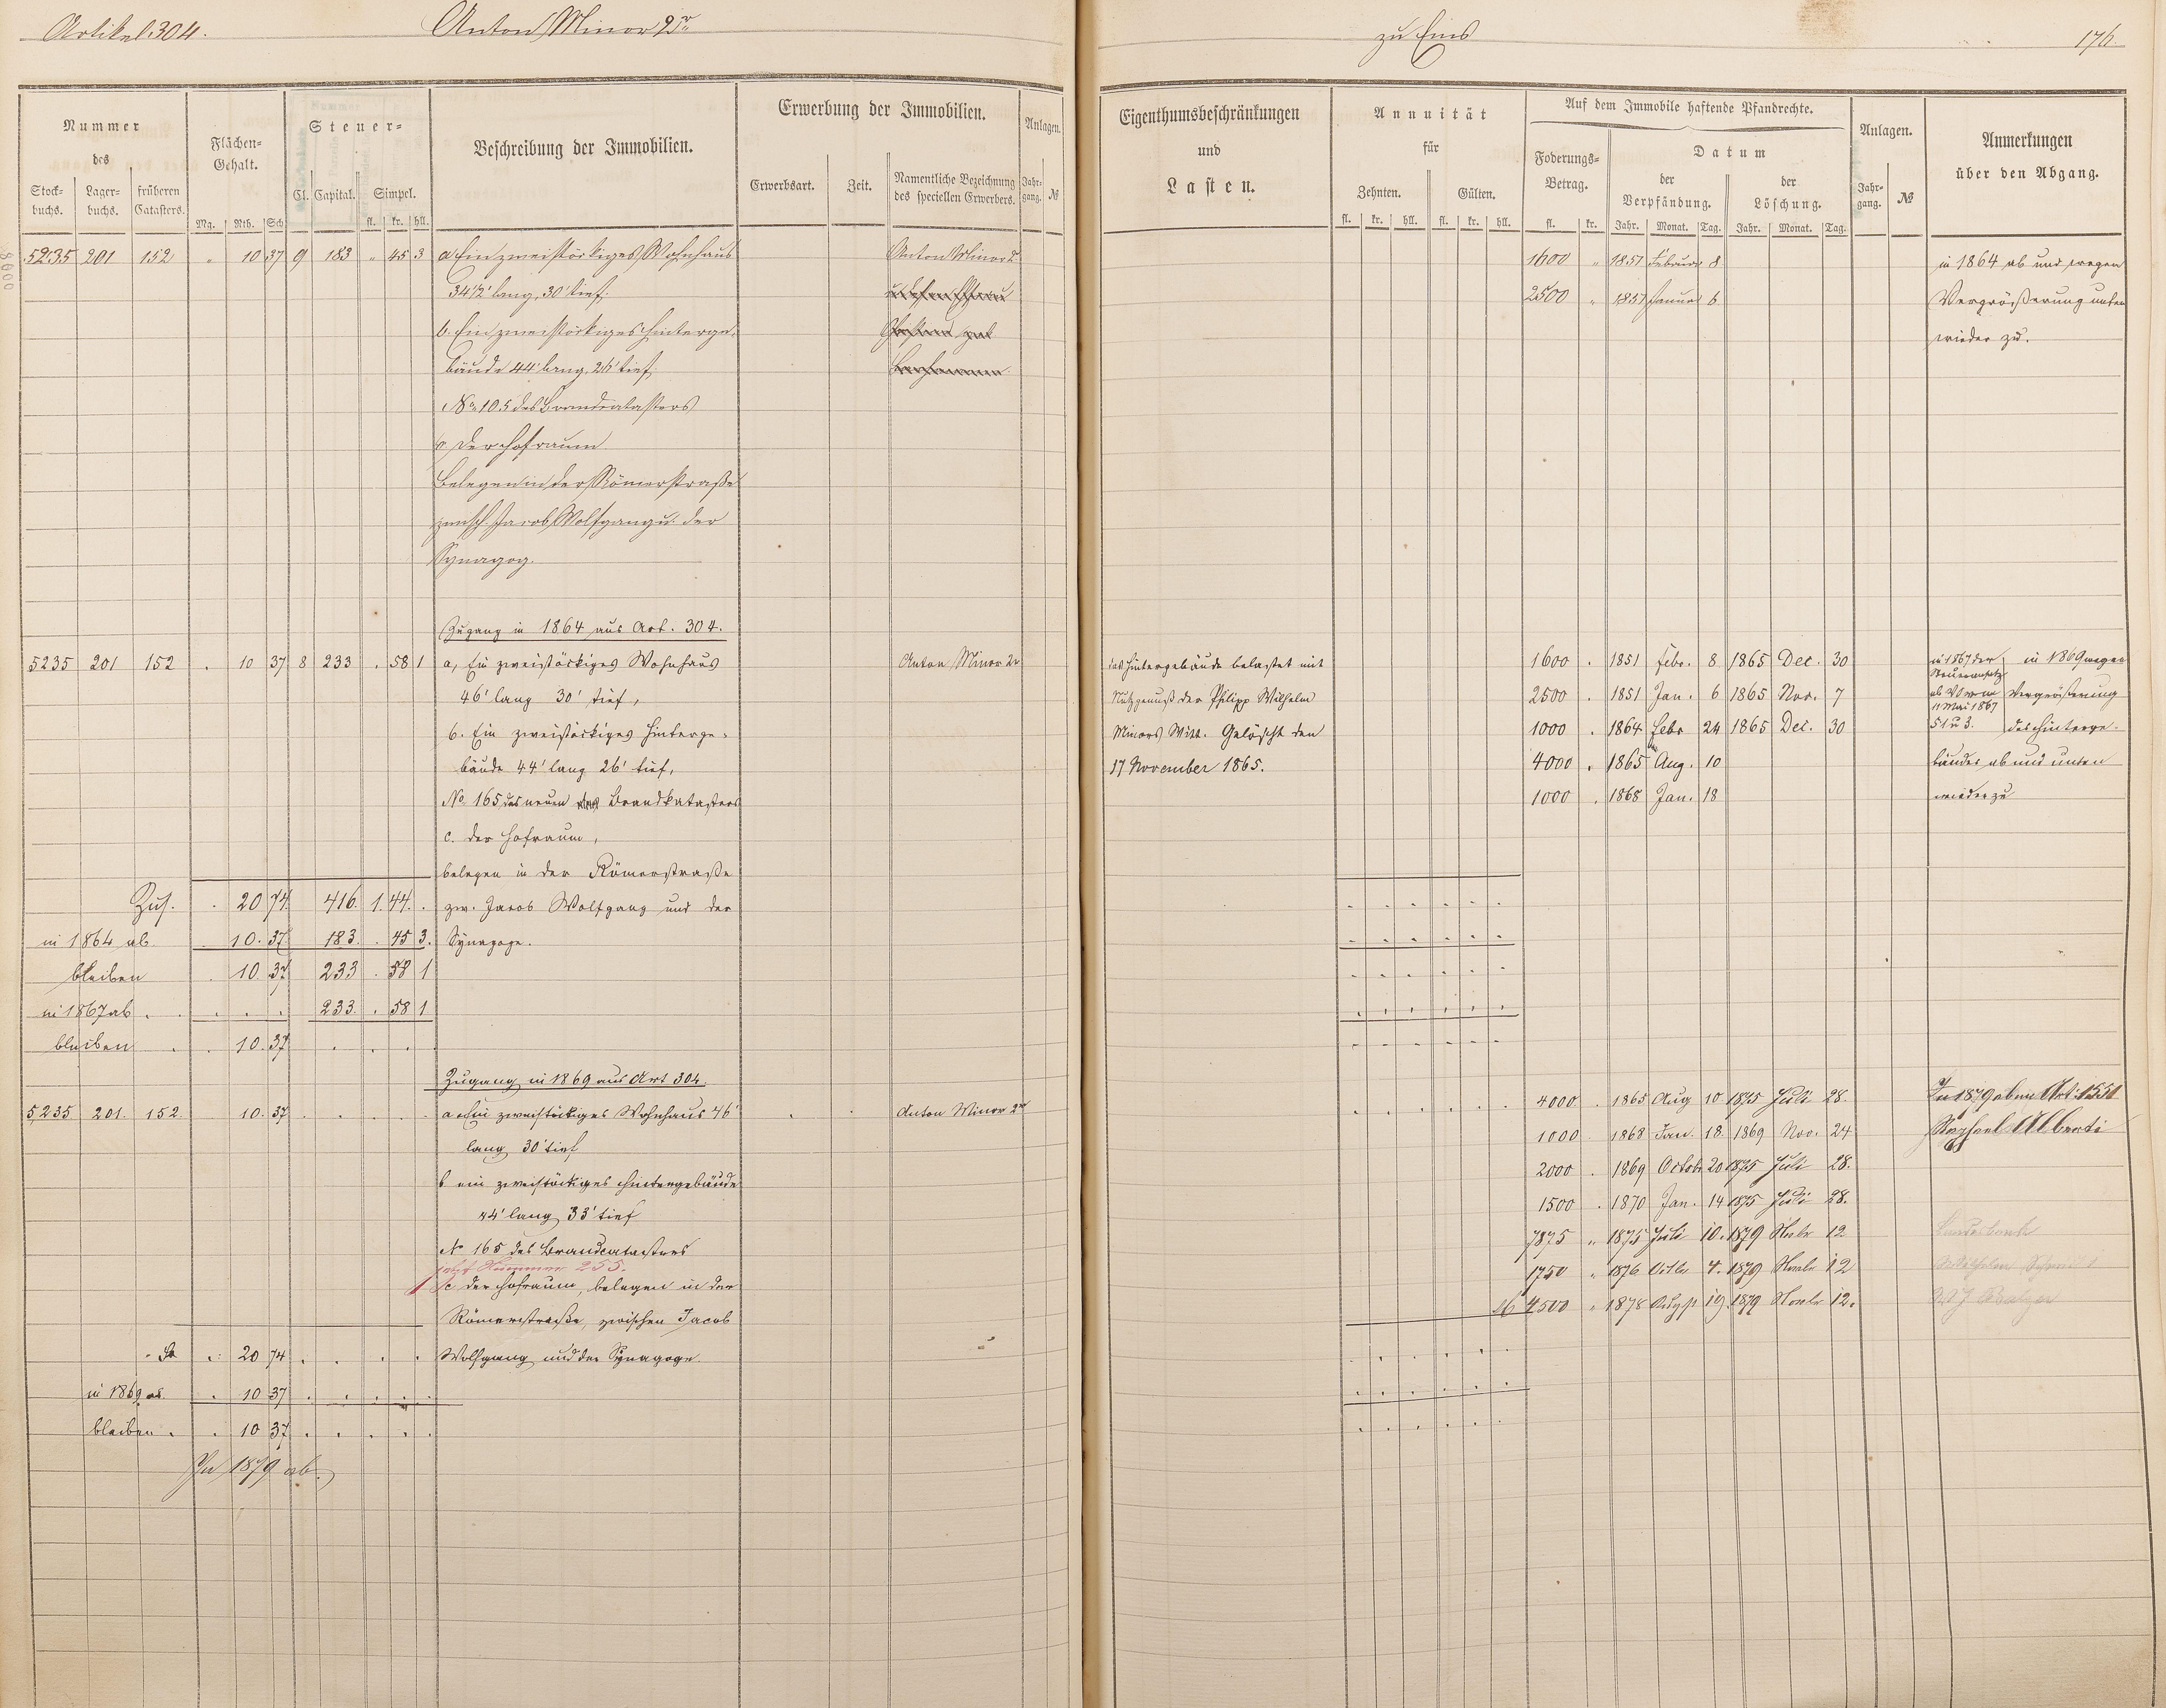 Artikel 304.
Anton Minor 2r
zu Ems
176.
Nummer des
Stockbuchs. Lagerbuchs. früheren Catasters.
Flächen-Gehalt.
Mg. Rth. Sch.
Steuer-
Cl. Capital. Simpel.
fl. kr. hll.
Beschreibung der Immobilien.
Erwerbung der Immobilien.
Erwerbsart. Zeit. Namentliche Bezeichnung des speciellen Erwerbers.
Anlagen.
Jahrgang. №
Eigenthumsbeschränkungen und Lasten.
Annuität für
Zehnten. Gülten.
fl. kr. hll. fl. kr. hll.
Auf dem Immobile haftende Pfandrechte.
Foderungs-Betrag.
fl. kr.
Datum
der Verpfändung. der Löschung.
Jahr. Monat. Tag. Jahr. Monat. Tag.
Anlagen.
Jahrgang. №
Anmerkungen über den Abgang.
5235 201 152 " 10 37 9 183 " 45 3 a Ein zweistöckiges Wohnhaus Anton Minor 2r
34 1/2' lang, 30' tief;
b. Ein zweistöckiges Hinterge-
bäude 44' lang, 26' tief;
No. 105 des Brandcatasters
c, der Hofraum
Belegen in der Römerstraße
zwisch. Jacob Wolfgang u. der
Synagog.
1600 " 1851 Februar 8
2500 " 1851 Januar 6
in 1864 ab und wegen
Vergrößerung unten
wieder zu.
Zugang in 1864 aus Art. 304.
5235 201 152 . 10 37 8 233 . 58 1 a, Ein zweistöckiges Wohnhaus Anton Minor 2r
46' lang 30' tief,
b. Ein zweistöckiges Hinterge-
bäude 44' lang 26' tief,
No. 165 des neuen Brandkatasters
c. der Hofraum,
belegen in der Römerstraße
zw. Jacob Wolfgang und der
Synagoge.
das Hintergebäude belastet mit
Nutzgenuß der Philipp Wilhelm
Minors Witt. Gelöscht den
17 November 1865.
1600 . 1851 Febr. 8 1865 Dec. 30
2500 . 1851 Jan. 6 1865 Nov. 7
1000 . 1864 Febr 24 1865 Dec. 30
4000 . 1865 Aug. 10
1000 . 1868 Jan. 18
in 1867 der
Steueransatz
11 Mai 1867
§1 u 3.
in 1869 wegen
Vergrößerung
des Hinterge-
bäudes ab und unten
wieder zu
Zus. . 20 74 416. 1. 44. .
in 1864 ab . 10. 37 183. . 45 3.
bleiben . 10. 37 233 . 58 1
in 1867 ab . . . . 233. . 58 1
bleiben . . 10. 37 . . .
Zugang in 1869 aus Art 304.
5235 201. 152. 10. 37 . . . . a Ein zweistöckiges Wohnhaus 46' . . Anton Minor 2r
lang 30' tief
b ein zweistöckiges Hintergebäude
44' lang 33' tief
No 165 des Brandcatasters
jetzt Nummer 255.
c der Hofraum, belegen in der
Römerstraße, zwischen Jacob
Wolfgang und der Synagoge.
4000 . 1865 Aug 10 1875 Juli 28.
1000 . 1868 Jan. 18. 1869 Nov. 24
2000 . 1869 Octob 20 1875 Juli 28.
1500 . 1870 Jan. 14 1875 Juli 28.
7875 " 1875 Juli 10. 1879 Novbr 12
1750 " 1876 Octbr 4. 1879 Novbr 12
M 4500 " 1878 19. 1879 Novbr 12.
In 1879 ab Art. 1551
Raphael Alberti
Landesbank
. 20 74 . . . .
in 1869 ab . 10 37 . . . . .
bleiben . . 10 37 . . . . .
In 1879 ab.